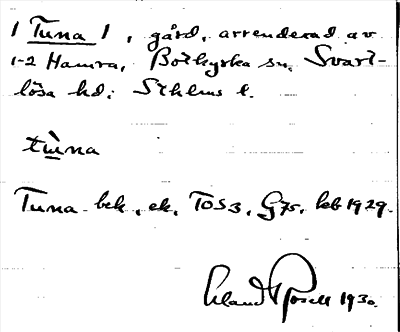 1 Tuna 1, gård, arrenderad av
1-2 Hamra, Botkyrka sn, Svart-
lösa hd; Sthlms l.
tùna
Tuna bek, ek, TOS3, G75, kb 1929.
Erland Rosell 1930.